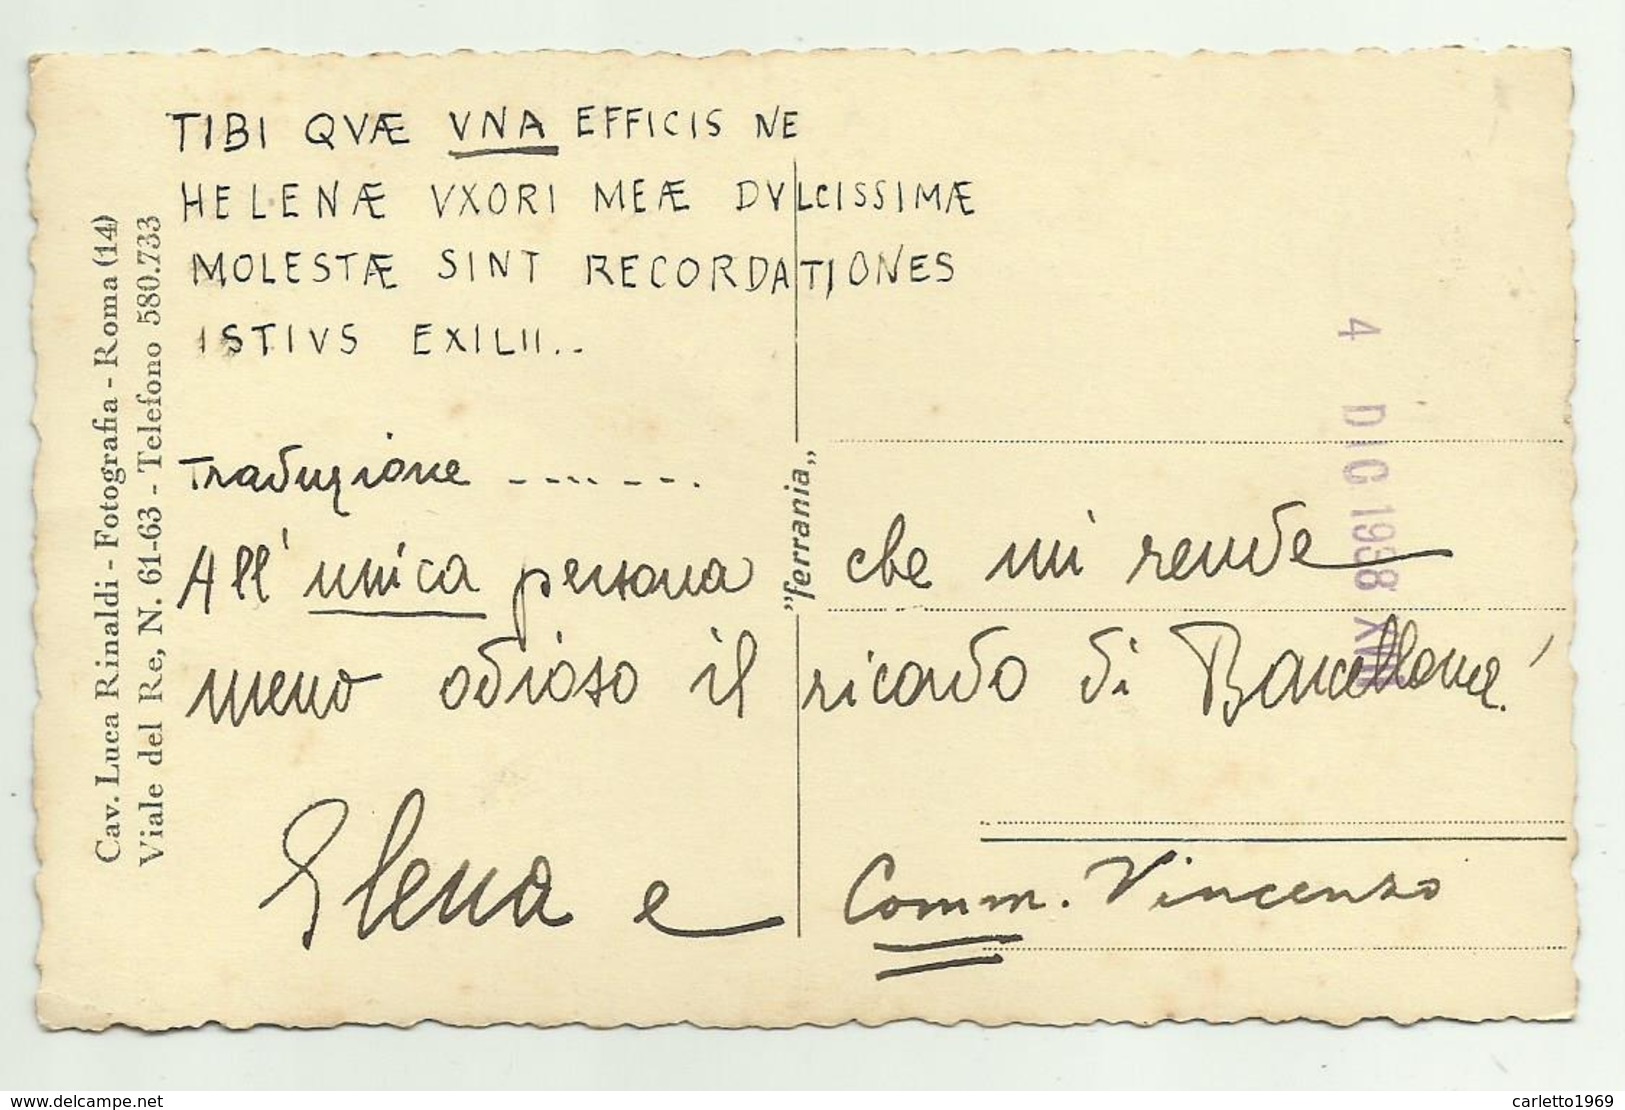 TIBI QVÆ VNA EFFICIS NE
HELENÆ VXORI MEÆ DVLCISSIMÆ
MOLESTÆ SINT RECORDATIONES
ISTIVS EXILII..
Traduzione .......
All'unica persona che mi rende
meno odioso il ricordo di Barcellona!
Elena e Comm. Vincenzo
Cav. Luca Rinaldi - Fotografia - Roma (14)
Viale del Re, N. 61-63 - Telefono 580.733
"ferrania"
4 DIC 1938 XVII
www.delcampe.net
carletto1969